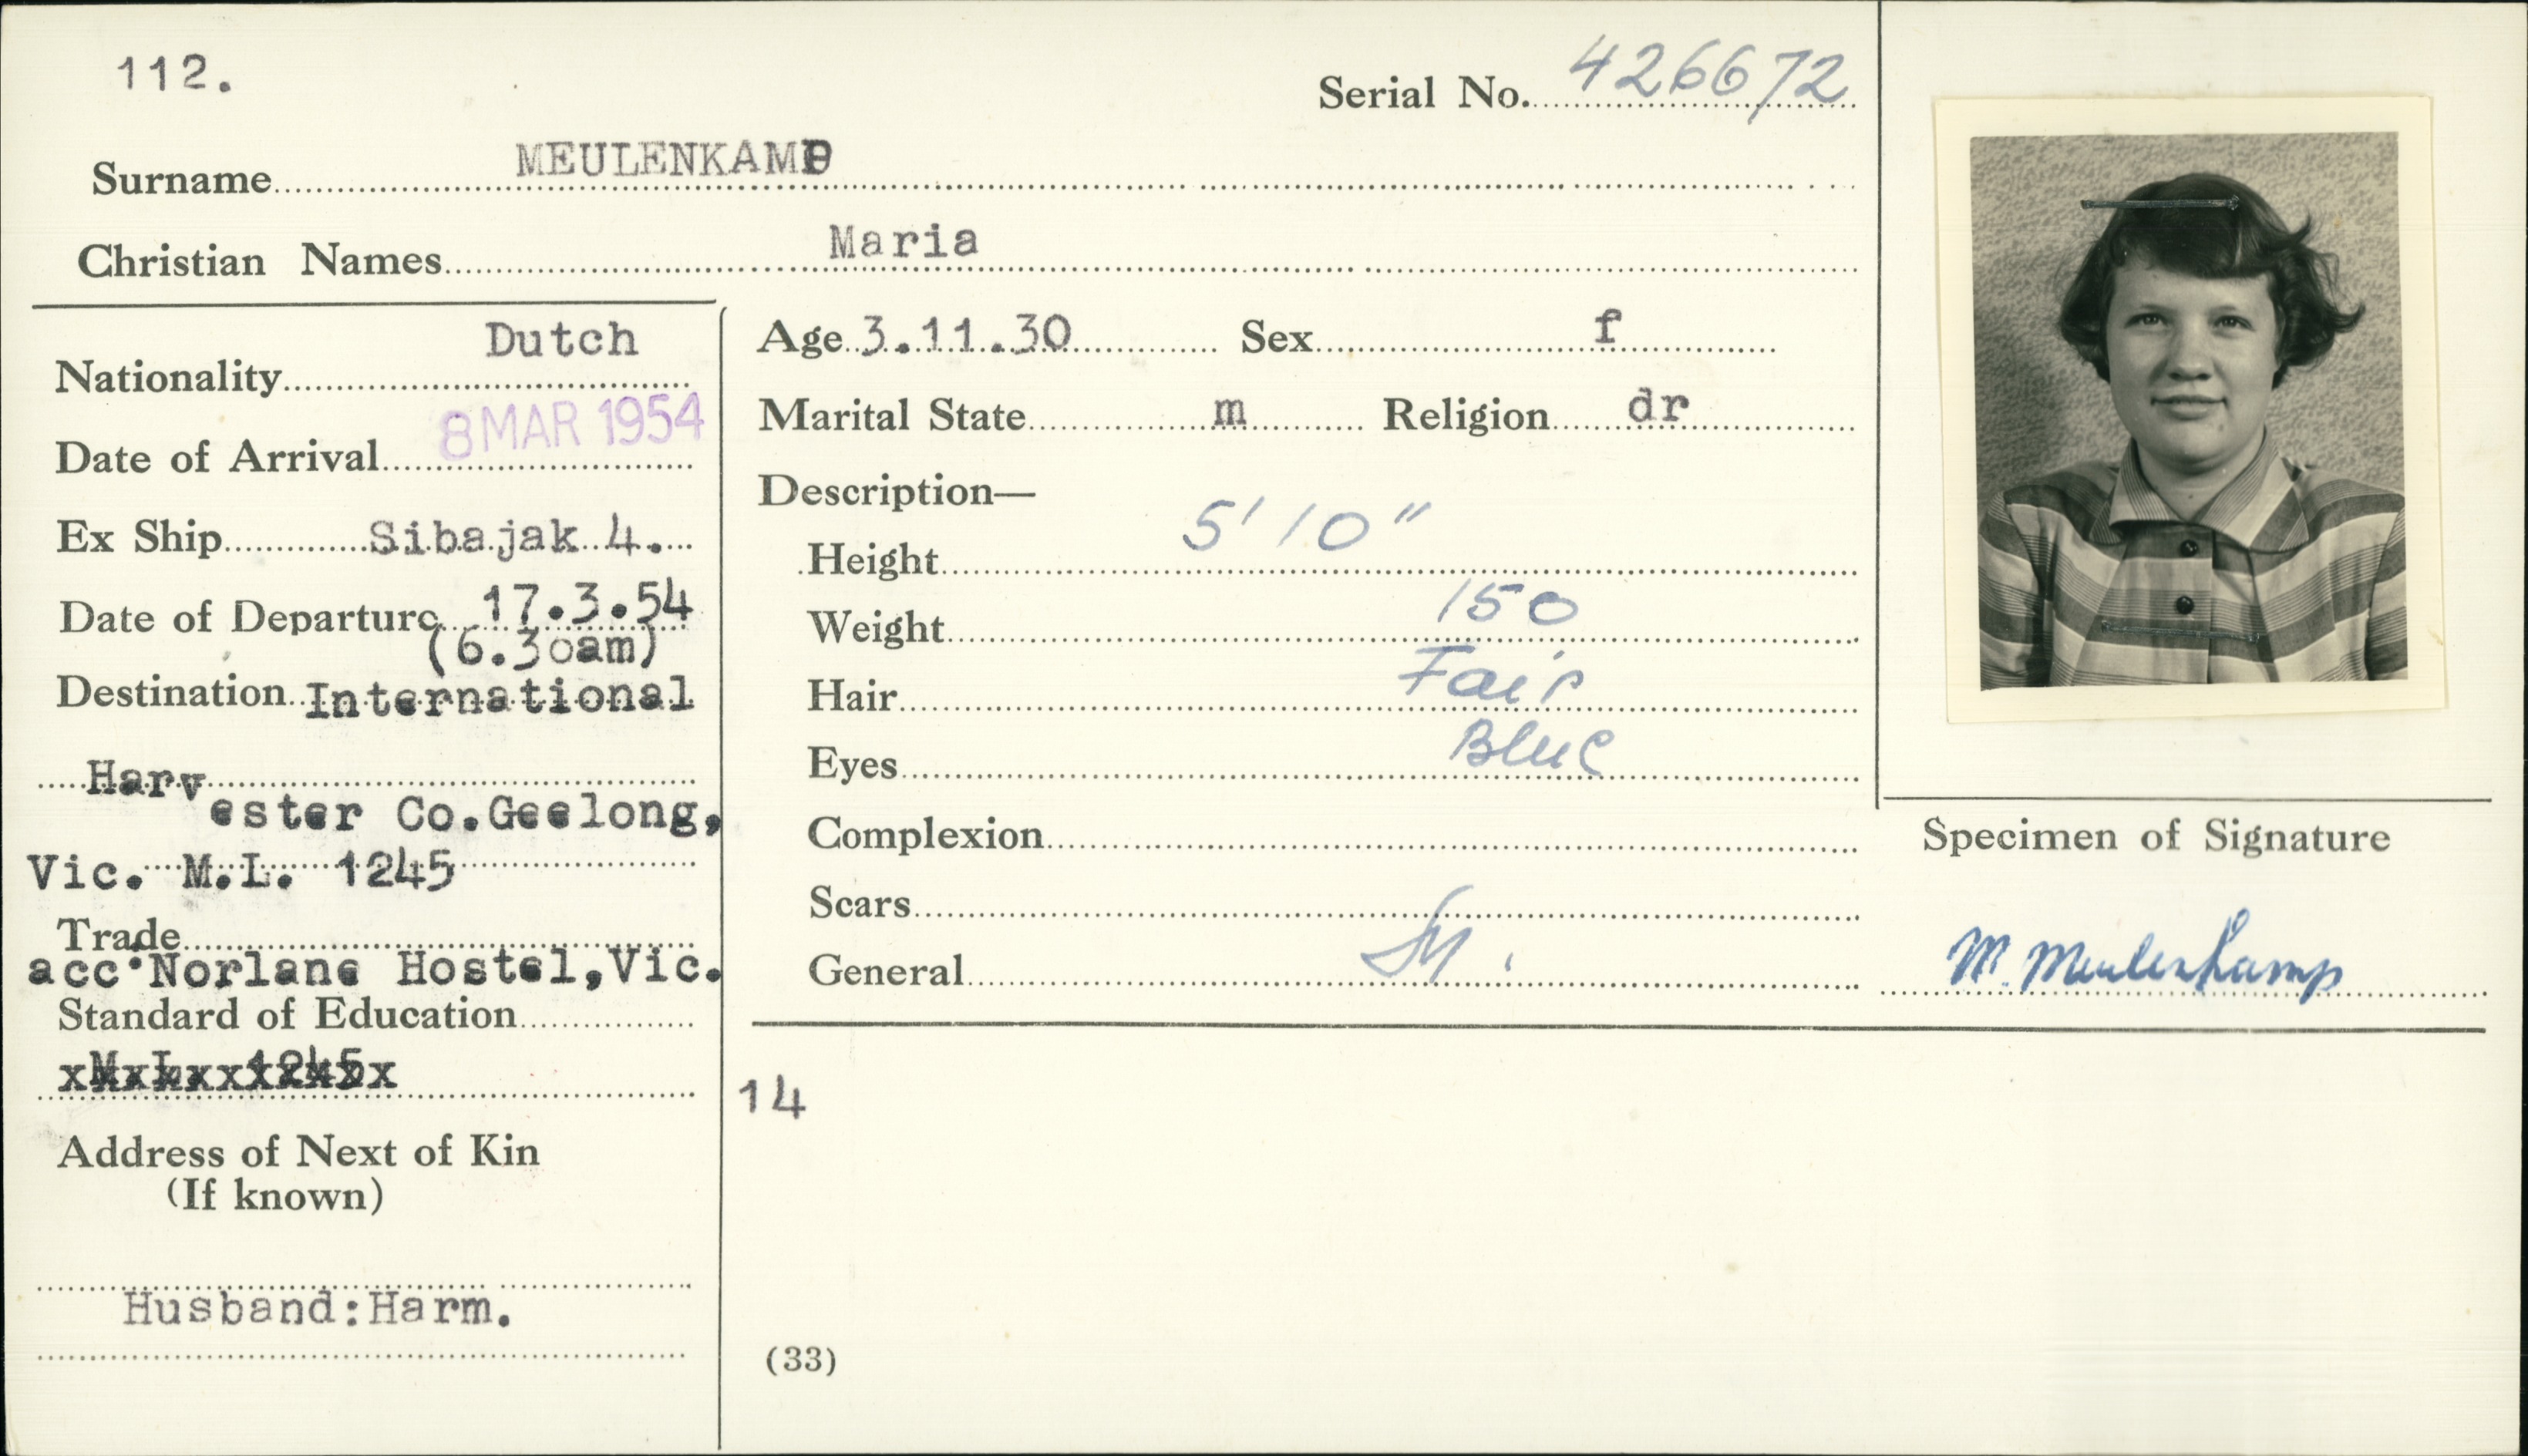 112.
Serial No. 426672
Surname MEULENKAMP
Christian Names Maria
Nationality Dutch
Date of Arrival 8 MAR 1954
Ex Ship Sibajak 4.
Date of Departure 17.3.54
(6.30am)
Destination International
Harv
ester Co.Geelong,
Vic. M.L. 1245
Trade
acc.Norlane Hostel,Vic.
Standard of Education
M.L. 1245
Address of Next of Kin
(If known)
Husband:Harm.
Age 3.11.30 Sex f
Marital State m Religion dr
Description—
Height 5' 10"
Weight 150
Hair Fair
Eyes Blue
Complexion
Scars
General
14
(33)
Specimen of Signature
M. Meulenkamp